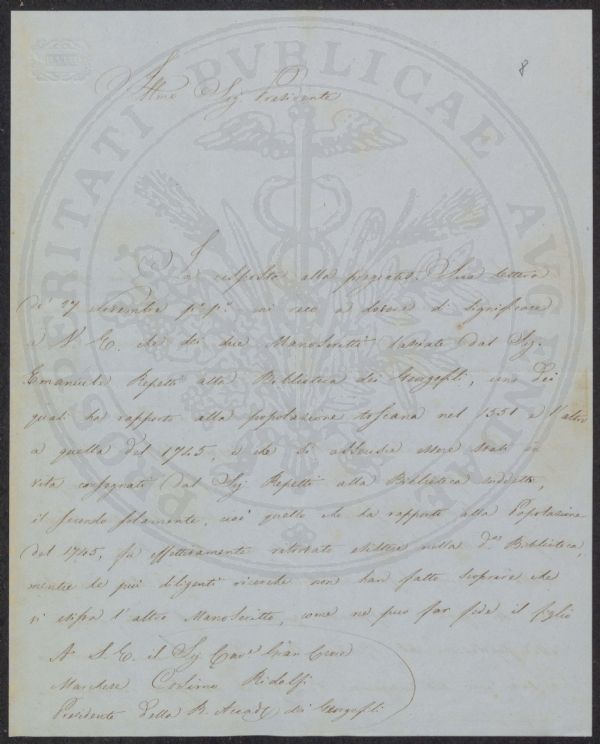 8
Illmo Sig. Presidente
In risposta alla pregiata Sua lettera
de' 27 Novembre p.o p.o mi reco a dovere di significare
a V. E. che dei due Manoscritti lasciati dal Sig.
Emanuele Repetti alla Biblioteca dei Georgofili, uno dei
quali ha rapporto alla popolazione toscana nel 1351 e l'altro
a quella del 1745, e che si asserisce essere stati in
vita consegnati dal Sig. Repetti alla Biblioteca suddetta,
il secondo solamente, cioè quello che ha rapporto alla Popolazione
del 1745, fu effettivamente ritrovato esistere nella d.a Biblioteca,
mentre le più diligenti ricerche non han fatto scoprire che
vi esista l'altro Manoscritto, come ne può far fede il foglio
A S. E. il Sig. Cav. Gran Croce
Marchese Cosimo Ridolfi
Presidente della R. Accad. dei Georgofili
PROSPERITATI PVBLICAE AVGENDAE